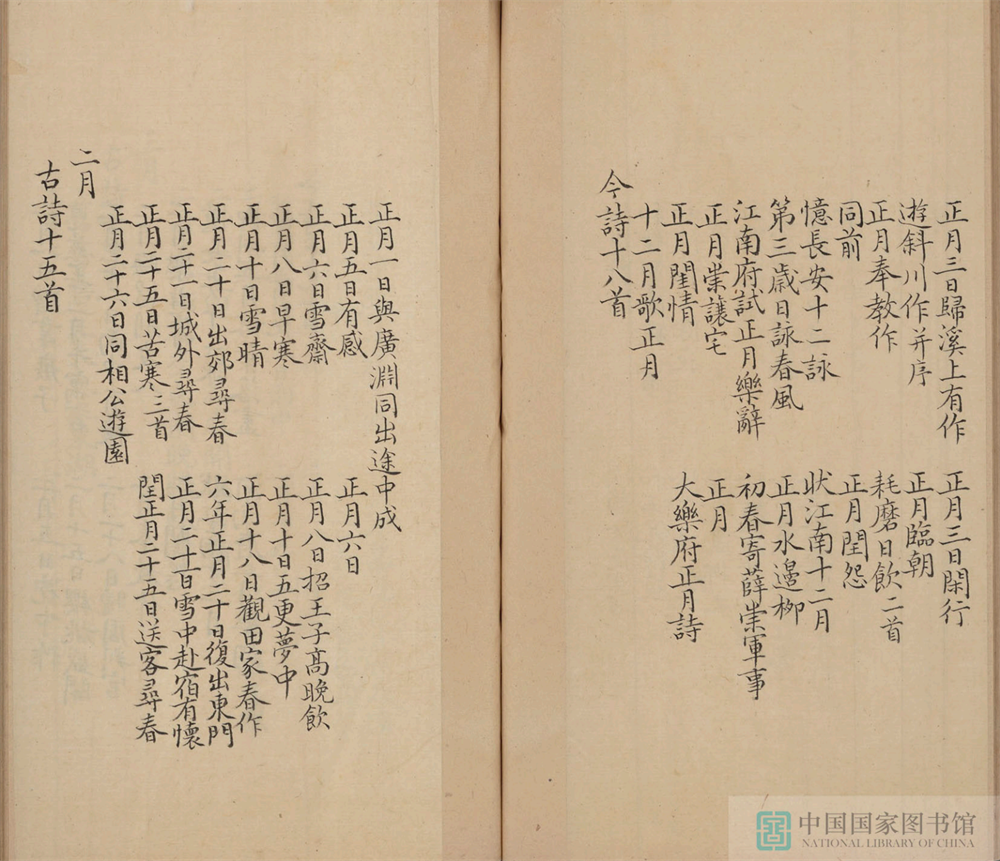 正月三日歸溪上有作 正月三日閑行
遊斜川作并序 正月臨朝
正月奉教作 耗磨日飲二首
同前 正月閨怨
憶長安十二詠 狀江南十二月
第三歲日詠春風 正月水邉柳
江南府試正月樂辭 初春寄薛崇軍事
正月崇讓宅 正月
正月閨情 大樂府正月詩
十二月歌正月
今詩十八首
正月一日與廣淵同出途中成
正月五日有感 正月六日
正月六日雪齋 正月八日招王子高晚飲
正月八日早寒 正月十日五更夢中
正月十日雪晴 正月十八日觀田家春作
正月二十日出郊尋春 六年正月二十日復出東門
正月二十一日城外尋春 正月二十一日雪中赴宿有懷
正月二十五日苦寒三首 閏正月二十五日送客尋春
正月二十六日同相公遊園
二月
古詩十五首
中国国家图书馆
NATIONAL LIBRARY OF CHINA